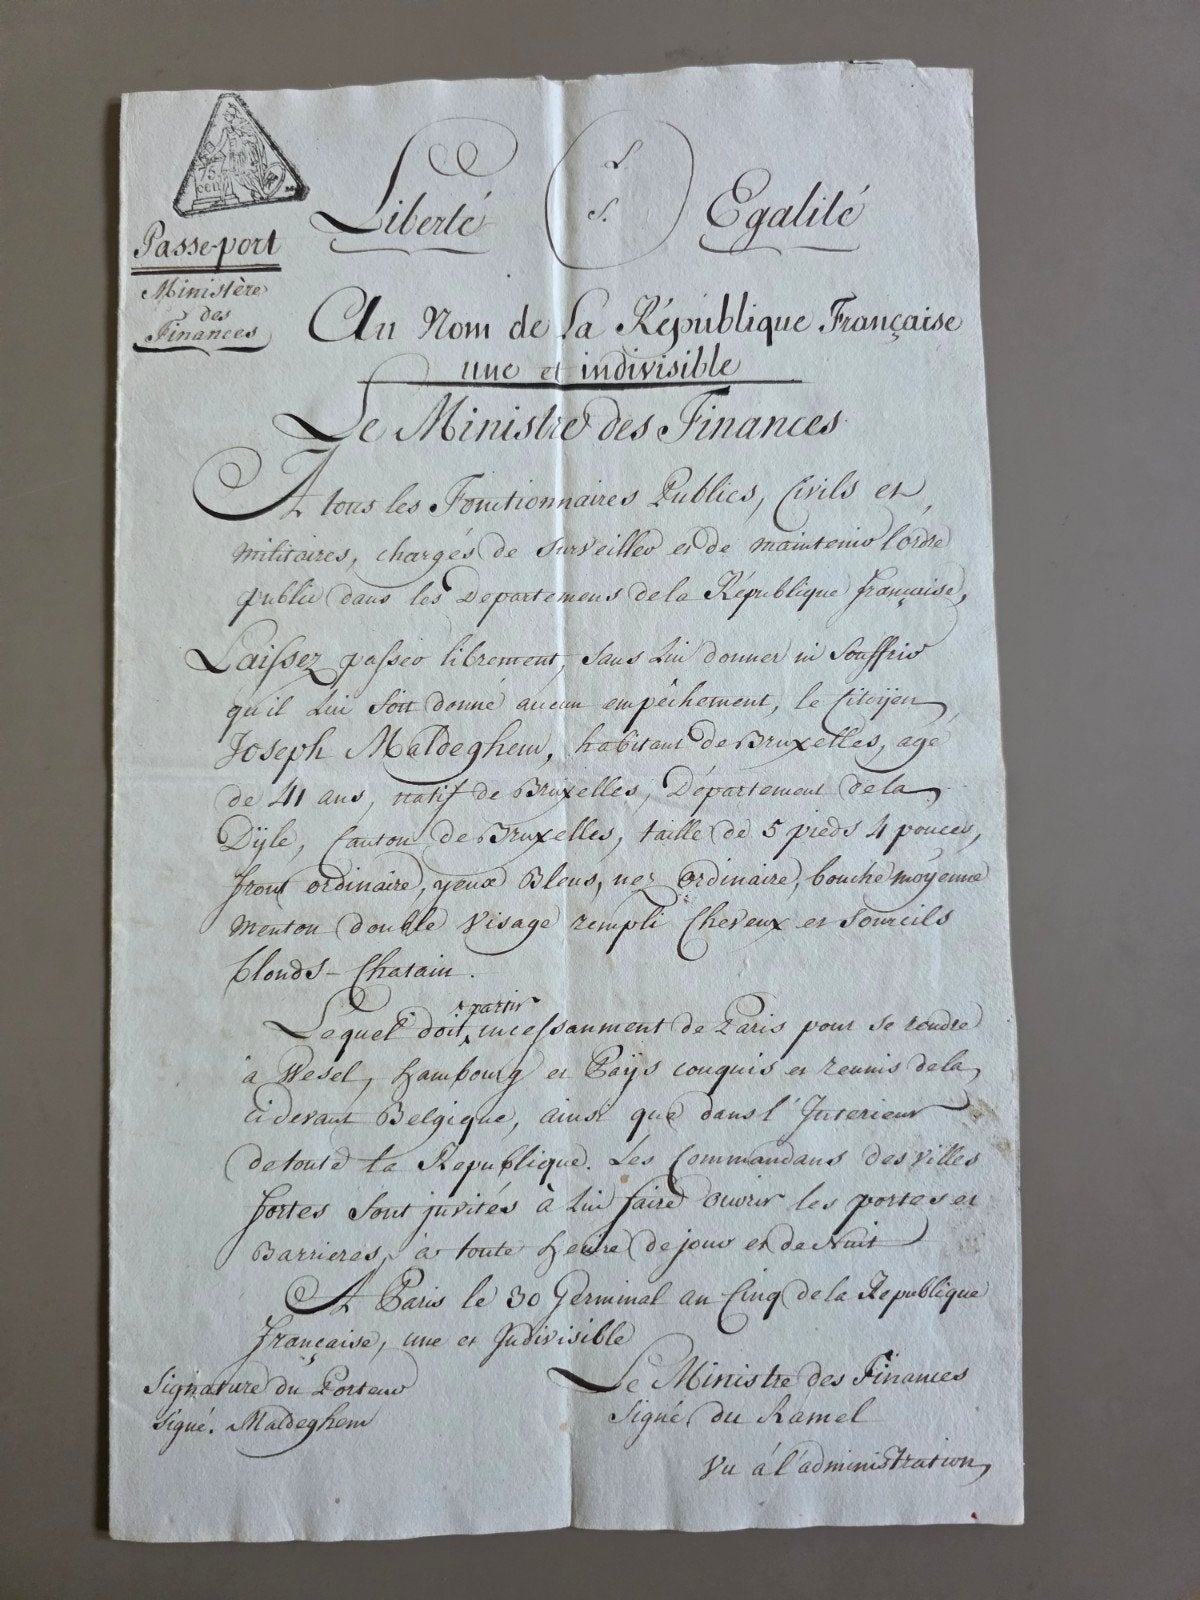 75
cen
Passe-port
Ministère
des
Finances
Liberté
L
S.
Egalité
Au Nom de la République Française
une et indivisible
Le Ministre des Finances
A tous les Fonctionnaires Publics, Civils et
militaires, chargés de surveiller et de maintenir l'ordre
public dans les Departemens de la République française,
Laissez passer librement, sans lui donner ni souffrir
qu'il lui soit donné aucun empêchement, le Citoÿen
Joseph Maldeghem, habitant de Bruxelles, agé
de 41 ans, natif de Bruxelles, Département de la
Dÿle, Canton de Bruxelles, taille de 5 pieds 4 pouces,
front ordinaire, yeux Bleus, nez Ordinaire, bouche moÿenne
menton double Visage rempli Cheveux et Sourcils
blonds-Chatain.
Lequel doit partir incessanment de Paris pour se rendre
à Wesel, hambourg et Païs conquis et reunis de la
ci devant Belgique, ainsi que dans l'Interieur
de toute la Republique. Les Commandans des Villes
fortes sont invités à lui faire ouvrir les portes et
Barrieres, à toute heure de jour et de Nuit
A Paris le 30 Germinal an Cinq de la Republique
française, une et Indivisible
Signature du Porteur
Signé. Maldeghem
Le Ministre des Finances
Signé du Ramel
Vu à l'administration